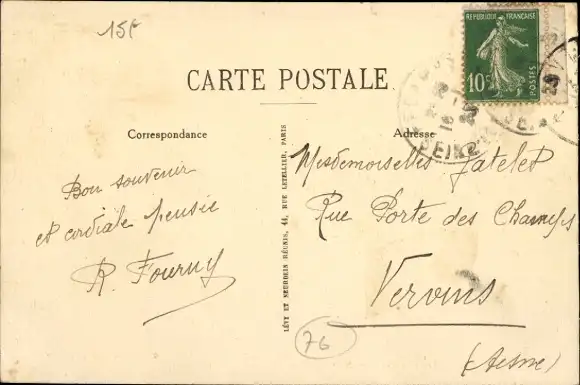 15f
RÉPUBLIQUE FRANÇAISE
10c
POSTES
CARTE POSTALE
Correspondance
Adresse
Bon souvenir
et cordiale pensée
R. Fourny
LÉVY ET NEURDEIN RÉUNIS, 44, RUE LETELLIER, PARIS
Mesdemoiselles Jatelet
Rue Porte des Champs
Vervins
(Aisne)
76